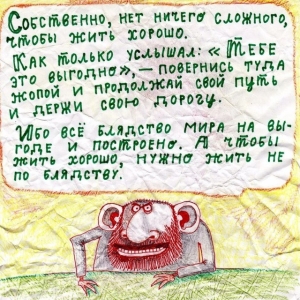 Собственно, нет ничего сложного,
чтобы жить хорошо.
Как только услышал: «Тебе
это выгодно», — повернись туда
жопой и продолжай свой путь
и держи свою дорогу.
Ибо всё блядство мира на вы-
годе и построено. А чтобы
жить хорошо, нужно жить не
по блядству.